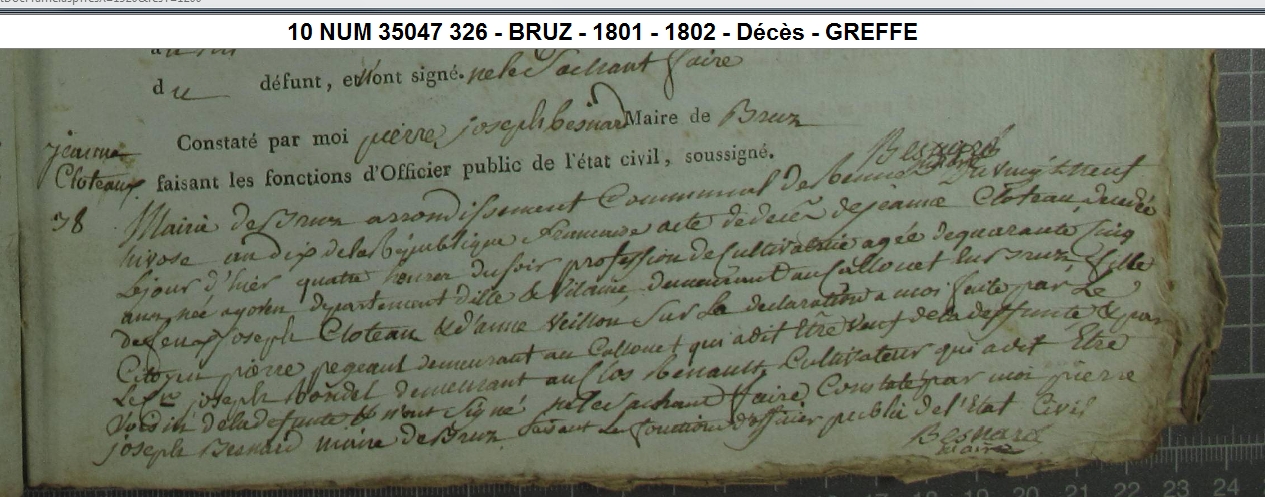 10 NUM 35047 326 - BRUZ - 1801 - 1802 - Décès - GREFFE
du défunt, et n'ont signé. ne le Sachant faire
Constaté par moi pierre joseph besnard Maire de Bruz
faisant les fonctions d'Officier public de l'état civil, soussigné. Besnard
maire
jeanne
Cloteaux
38
Mairie de Bruz arrondissement Communal de Renne Du vingt neuf
nivose an dix de la République francaise acte de décès de jeanne Cloteau décédée
le jour d'hier quatre heures du soir profession de Cultivatrice agée de quarante Cinq
ans, née département d'ille & Vilaine demeurant au Callouet En Bruz fille
de joseph Cloteau & d'anne Veillon Sur la déclaration a moi faite par Le
Citoyen pierre pegeaut demeurant au Callouet qui a dit Etre veuf de la deffunte & par
Le joseph bondel demeurant au Clos Henault, Cultivateur qui a dit Etre
Voisin de la defunte & n'ont Signé ne le Sachant faire Constaté par moi pierre
joseph Besnard maire de Bruz faisant Les fonctions d'officier public de l'Etat Civil
Besnard
maire
17 18 19 20 21 22 23 24